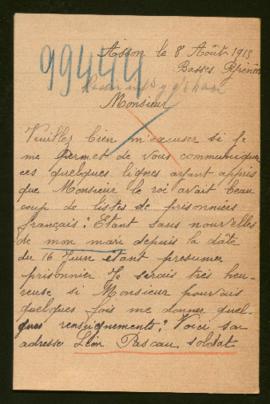 Asson le 8 Août 1915
Basses Pyrénées
99444
Monsieur
Veuillez bien m'excuser si je
me permet de vous communiquer
ces quelques lignes ayant appris
que Monsieur le roi avait beau
coup de listes de prisonniers
français. Etant sans nouvelles
de mon mari depuis la date
du 16 Juin étant presumer
prisonnier. Je serais très heu-
reuse si Monsieur pouvais
quelques fois me donner quel-
ques renseignements. Voici son
adresse Léon Pascau soldat